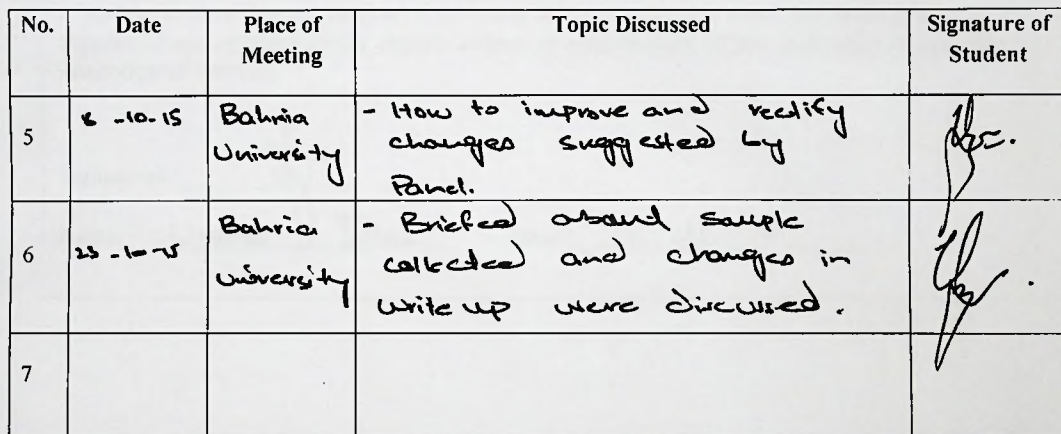 No. Date Place of Meeting Topic Discussed Signature of Student
5 8 -10-15 Bahria University - How to improve and rectify
changes suggested by
Panel.
6 23 -10-15 Bahria University - Briefed about sample
collected and changes in
write up were discussed.
7